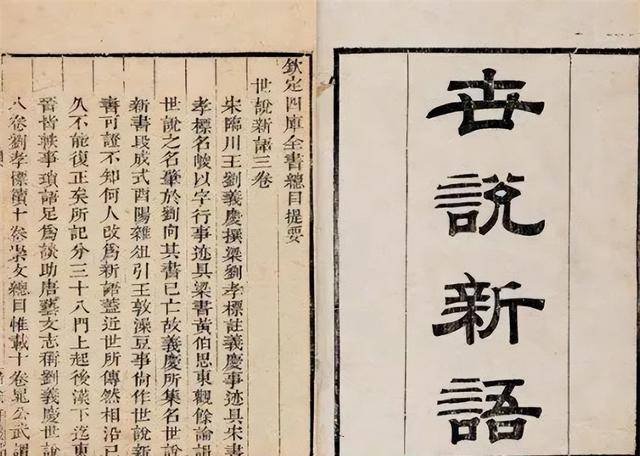 世說新語
欽定四庫全書總目提要
世說新語三卷
宋臨川王劉義慶撰梁劉孝標註義慶事迹具宋書
孝標名峻以字行事迹具梁書黃伯思東觀餘論謂
世說之名肇於劉向其書已亡故義慶所集名世說
新書段成式酉陽雜俎引王敦澡豆事尙作世說新
書可證不知何人改爲新語蓋近世所傳然相沿已
久不能復正矣所記分三十八門上起後漢下迄東
晉皆軼事瑣語足爲談助唐藝文志稱劉義慶世說
八卷劉孝標續十卷崇文總目惟載十卷晁公武謂